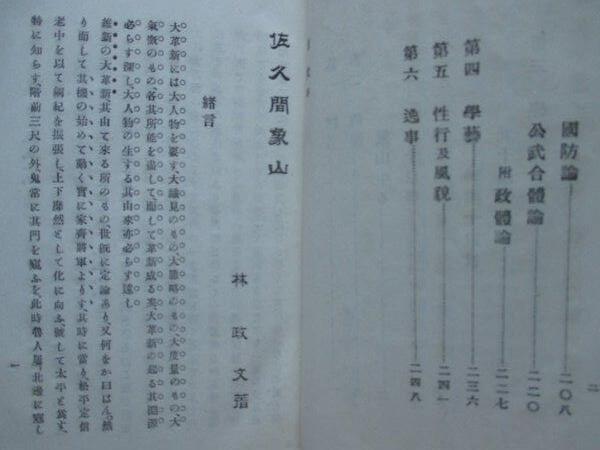 二
國防論………二〇八
公武合體論………二二〇
附 政體論………二二七
第四 學藝………二三六
第五 性行及風貌………二四一
第六 逸事………二四八
佐久間象山
林政文著
緒言
大革新には大人物を要す、大識見のもの、大膽略のもの、大度量のもの、大
氣慨のもの、各其所能を盡して而して革新成る、夫大革新の起る其淵源
必らす深し、大人物の生する其由來亦必らす遠し
維新の大革新其由て來る所のもの世旣に定論あり、又何をか曰はん、然
り而して其機の始めて動く實に家齊將軍よりす、其時に當り、松平定信
老中を以て綱紀を振張し、上下靡然として化に向ふ、號して太平と爲す、
特に知らす、階前三尺の外鬼常に其門を窺ふを、此時魯人屢〻北邊に寇し
一